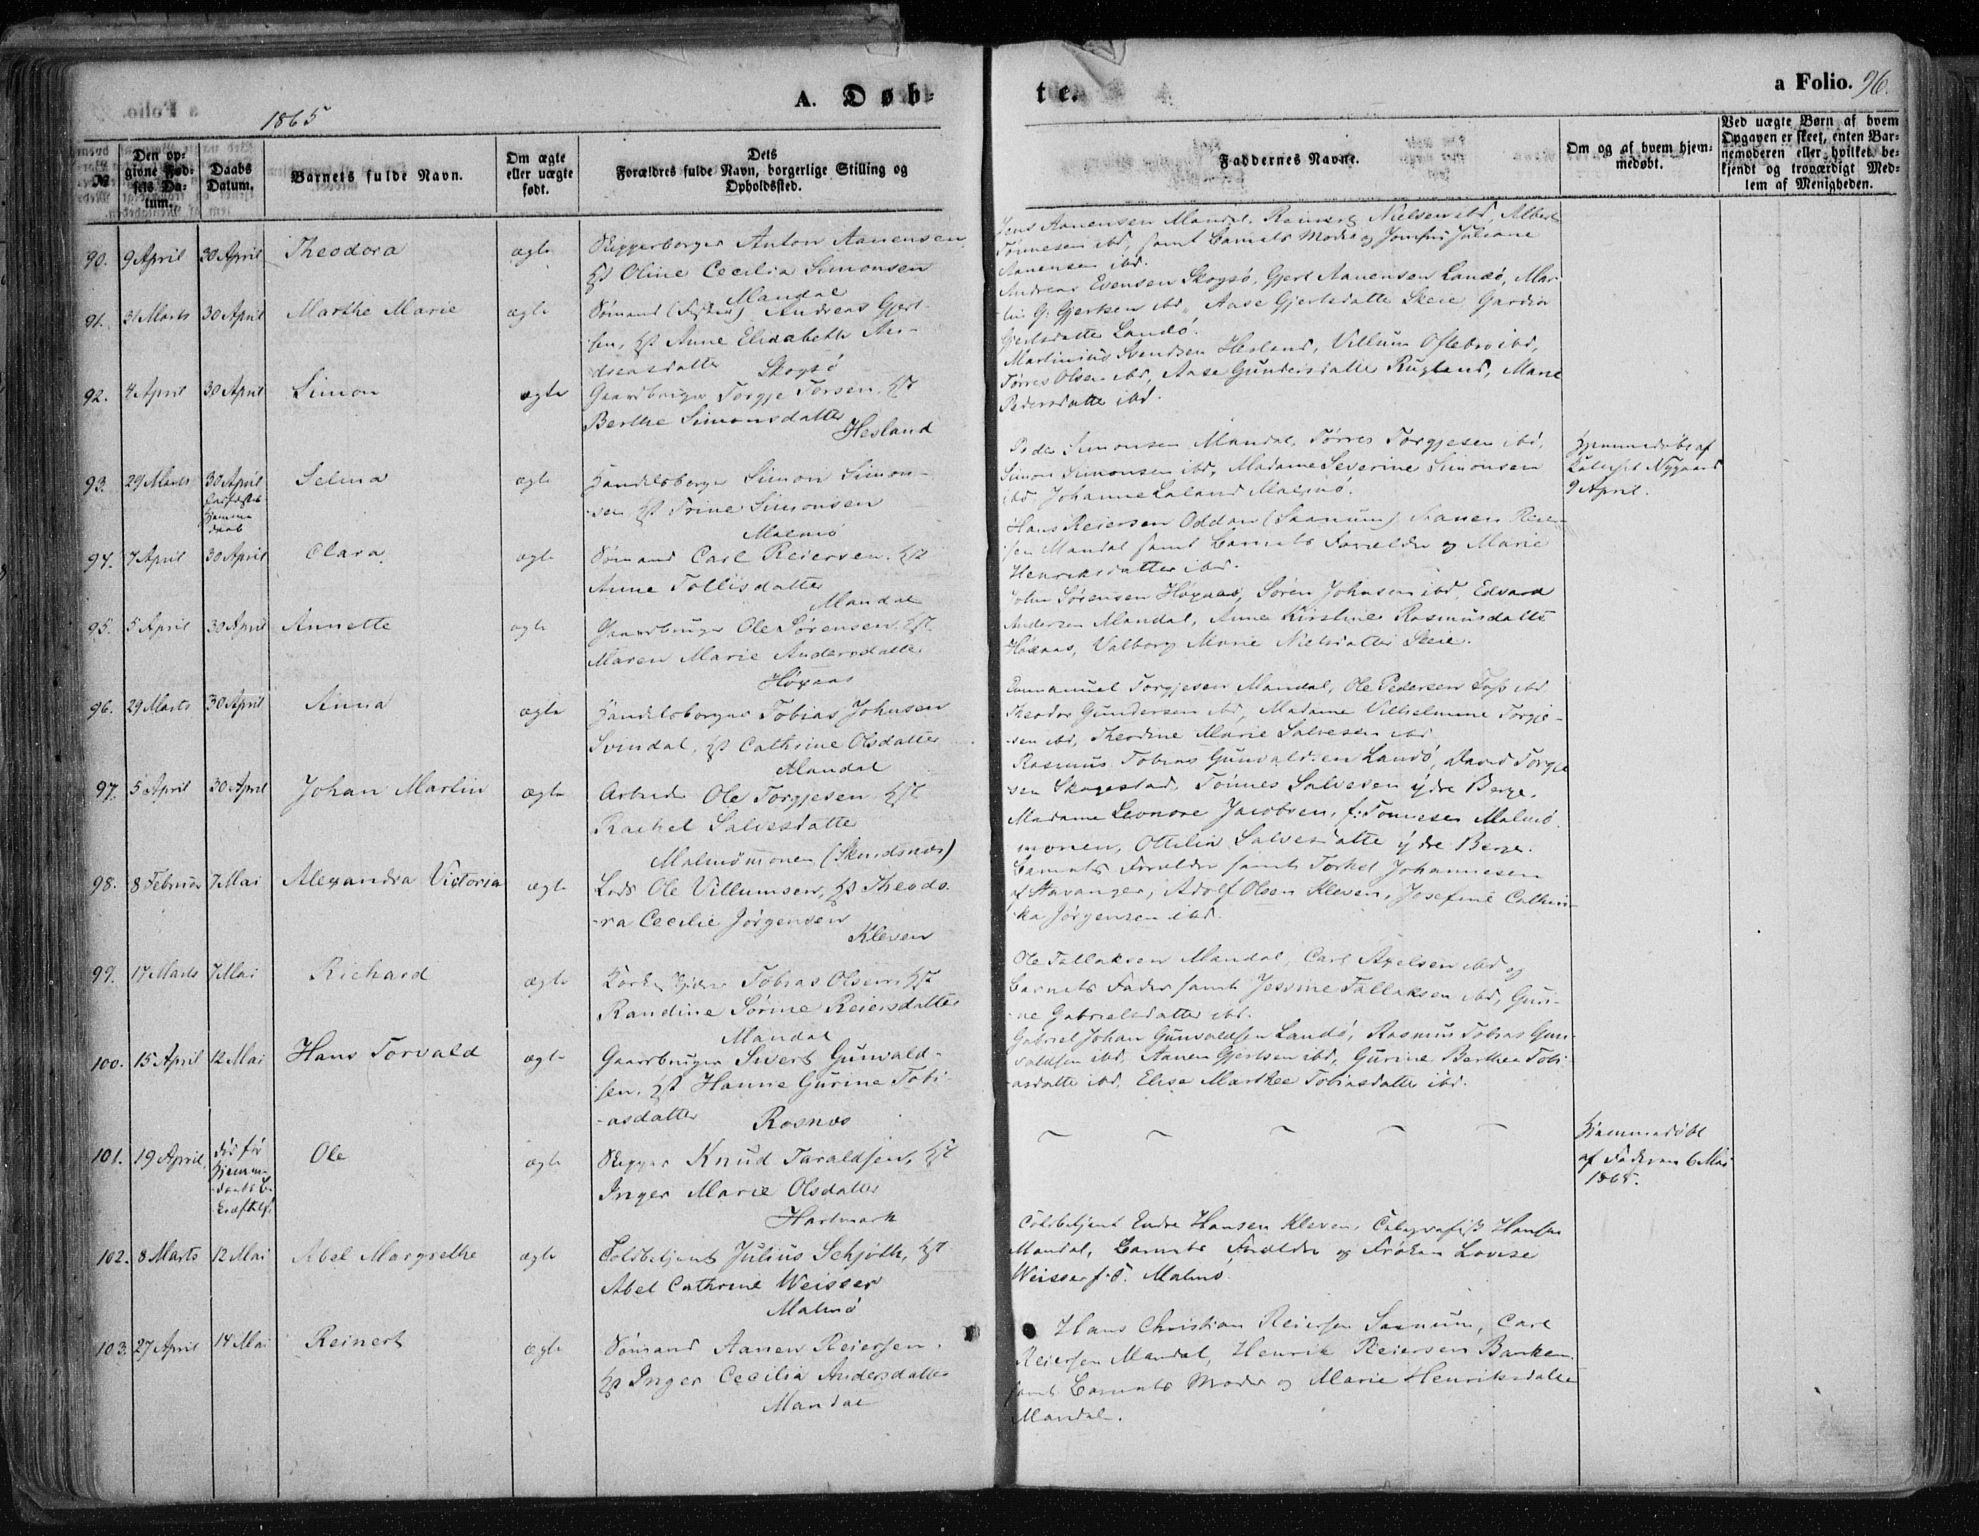 1865
A. Døb-
te.
a Folio. 96.
№
Den op-
givne Fød-
sels Da-
tum.
Daabs
Datum.
Barnets fulde Navn.
Om ægte
eller uægte
født.
Dets
Forældres fulde Navn, borgerlige Stilling og
Opholdssted.
Faddernes Navne.
Om og af hvem hjem-
medøbt.
Ved uægte Børn af hvem
Opgaven er skeet, enten Bar-
nemoderen eller hvilket be-
kjendt og troværdigt Med-
lem af Menigheden.
90. 9 April 30 April Theodora ægte
Skipperborger Anton Aanensen,
Hst Oline Cecilia Simonsen
Mandal
Jens Aanensen Mandal, Reinert Nielsen ibd, Albert
Tønnesen ibd, samt Barnets Moder og Jomfru Juliane
Aanensen ibd.
91. 31 Marts 30 April Marthe Marie ægte
Sømand Andreas Gjert-
sen, Hst Anne Elisabeth An-
dreasdatter Skogsø
Andreas Evensen Skogsø, Gjert Aanensen Landø, Mar-
tin G. Gjertsen ibd, Aase Gjertsdatter Skeie
Gjertsdatter Landø.
92. 4 April 30 April Simon ægte
Gaardbruger Torgje Tersen, Hst
Berthe Simonsdatter
Hesland
Martinius Svendsen Hesland, Villum Oftebro ibd,
Tørres Olsen ibd, Aase Gundersdatter Rugland, Marie
Pedersdatter ibd.
93. 29 Marts 30 April Selma ægte
Handelsborger Simon Simon-
sen Hst Trine Simonsen
Malmø
Peder Simonsen Mandal, Tørres Torgjesen ibd,
Simon Simonsen ibd, Madame Severine Simonsen
ibd Johanne Laland Malmø.
Hjemmedøbt af
Nygaard
9 April.
94. 7 April 30 April Clara ægte
Sømand Carl Reiersen, Hst
Anne Tollisdatter
Mandal
Hans Reiersen Oddan (Saanum) Aanen Reier-
sen Mandal samt Barnets Forældre og Marie
Henriksdatter ibd.
95. 5 April 30 April Annette ægte
Gaardbruger Ole Sørensen, Hst
Maren Marie Andersdatter
Høxaas
John Sørensen Høxaas, Søren Johnsen ibd, Edvard
Andersen Mandal, Anne Kirstine Rasmusdatter
Høxaas, Valborg Marie Nielsdatter Skeie.
96. 29 Marts 30 April Anna ægte
Handelsborger Tobias Johnsen
Svindal, Hst Cathrine Olsdatter
Mandal
Emmanuel Torgjesen Mandal, Ole Pedersen Foss ibd
Theodor Gundersen ibd, Madame Vilhelmine Torgje-
sen ibd, Theodine Marie Salvesen ibd
97. 5 April 30 April Johan Martin ægte
Arbeid. Ole Torgjesen, Hst
Rachel Salvesdatter
Malmømonen (Skindsnes)
Rasmus Tobias Gunvaldsen Landø, David Torgje
sen Skogestad, Tønnes Salvesen ydre Berge.
Madame Leonore Jacobsen, f: Tønnesen Malmø-
monen, Ottilia Salvesdatter ydre Berge.
98. 8 Februar 7 Mai Alexandra Victoria ægte
Lods Ole Villumsen, Hst Theodo-
ra Cecilie Jørgensen
Kleven
Barnets Forældre samt Torkel Johannesen
af Stavanger, Adolf Olsen Kleven, Josefine Cathin-
ka Jørgensen ibd.
99. 17 Marts 7 Mai Richard ægte
Tobias Olsen, Hst
Randine Sørine Reiersdatter
Mandal
Ole Tallaksen Mandal, Carl Axelsen ibd og
Barnets Fader samt Jessine Tallaksen ibd, Guri-
ne Gabrielsdatter ibd.
100. 15 April 12 Mai Hans Torvald ægte
Gaardbruger Sivert Gunvald-
sen, Hst Hanne Gurine Tobi-
asdatter Rosnes
Gabriel Johan Gunvaldsen Landø, Rasmus Tobias Gun-
valdsen ibd, Aanen Gjertsen ibd, Gurine Berthea Tobi-
asdatter ibd, Elise Marthee Tobiasdatter ibd.
101. 19 April Død før
Hjemme-
daabs Be-
kræftelse
Ole ægte
Skipper Knud Taraldsen, Hst
Inger Marie Olsdatter
Hartmark
Hjemmedøbt
af Faderen 6 Mai
1865.
102. 8 Marts 12 Mai Abel Margrethe ægte
Toldbetjent Julius Schjøth, Hst
Abel Cathrine Weisser
Malmø
Toldbetjent Endre Hansen Kleven, Hansen
Mandal, Barnets Forældre og Frøken Lovise
Weisser f.T. Malmø.
103. 27 April 14 Mai Reinert ægte
Sømand Aanen Reiersen.
Hst Inger Cecilia Andersdatter
Mandal
Hans Christian Reiersen Saanum, Carl
Reiersen Mandal, Henrik Reiersen Banken
samt Barnets Moder og Marie Henriksdatter
Mandal.